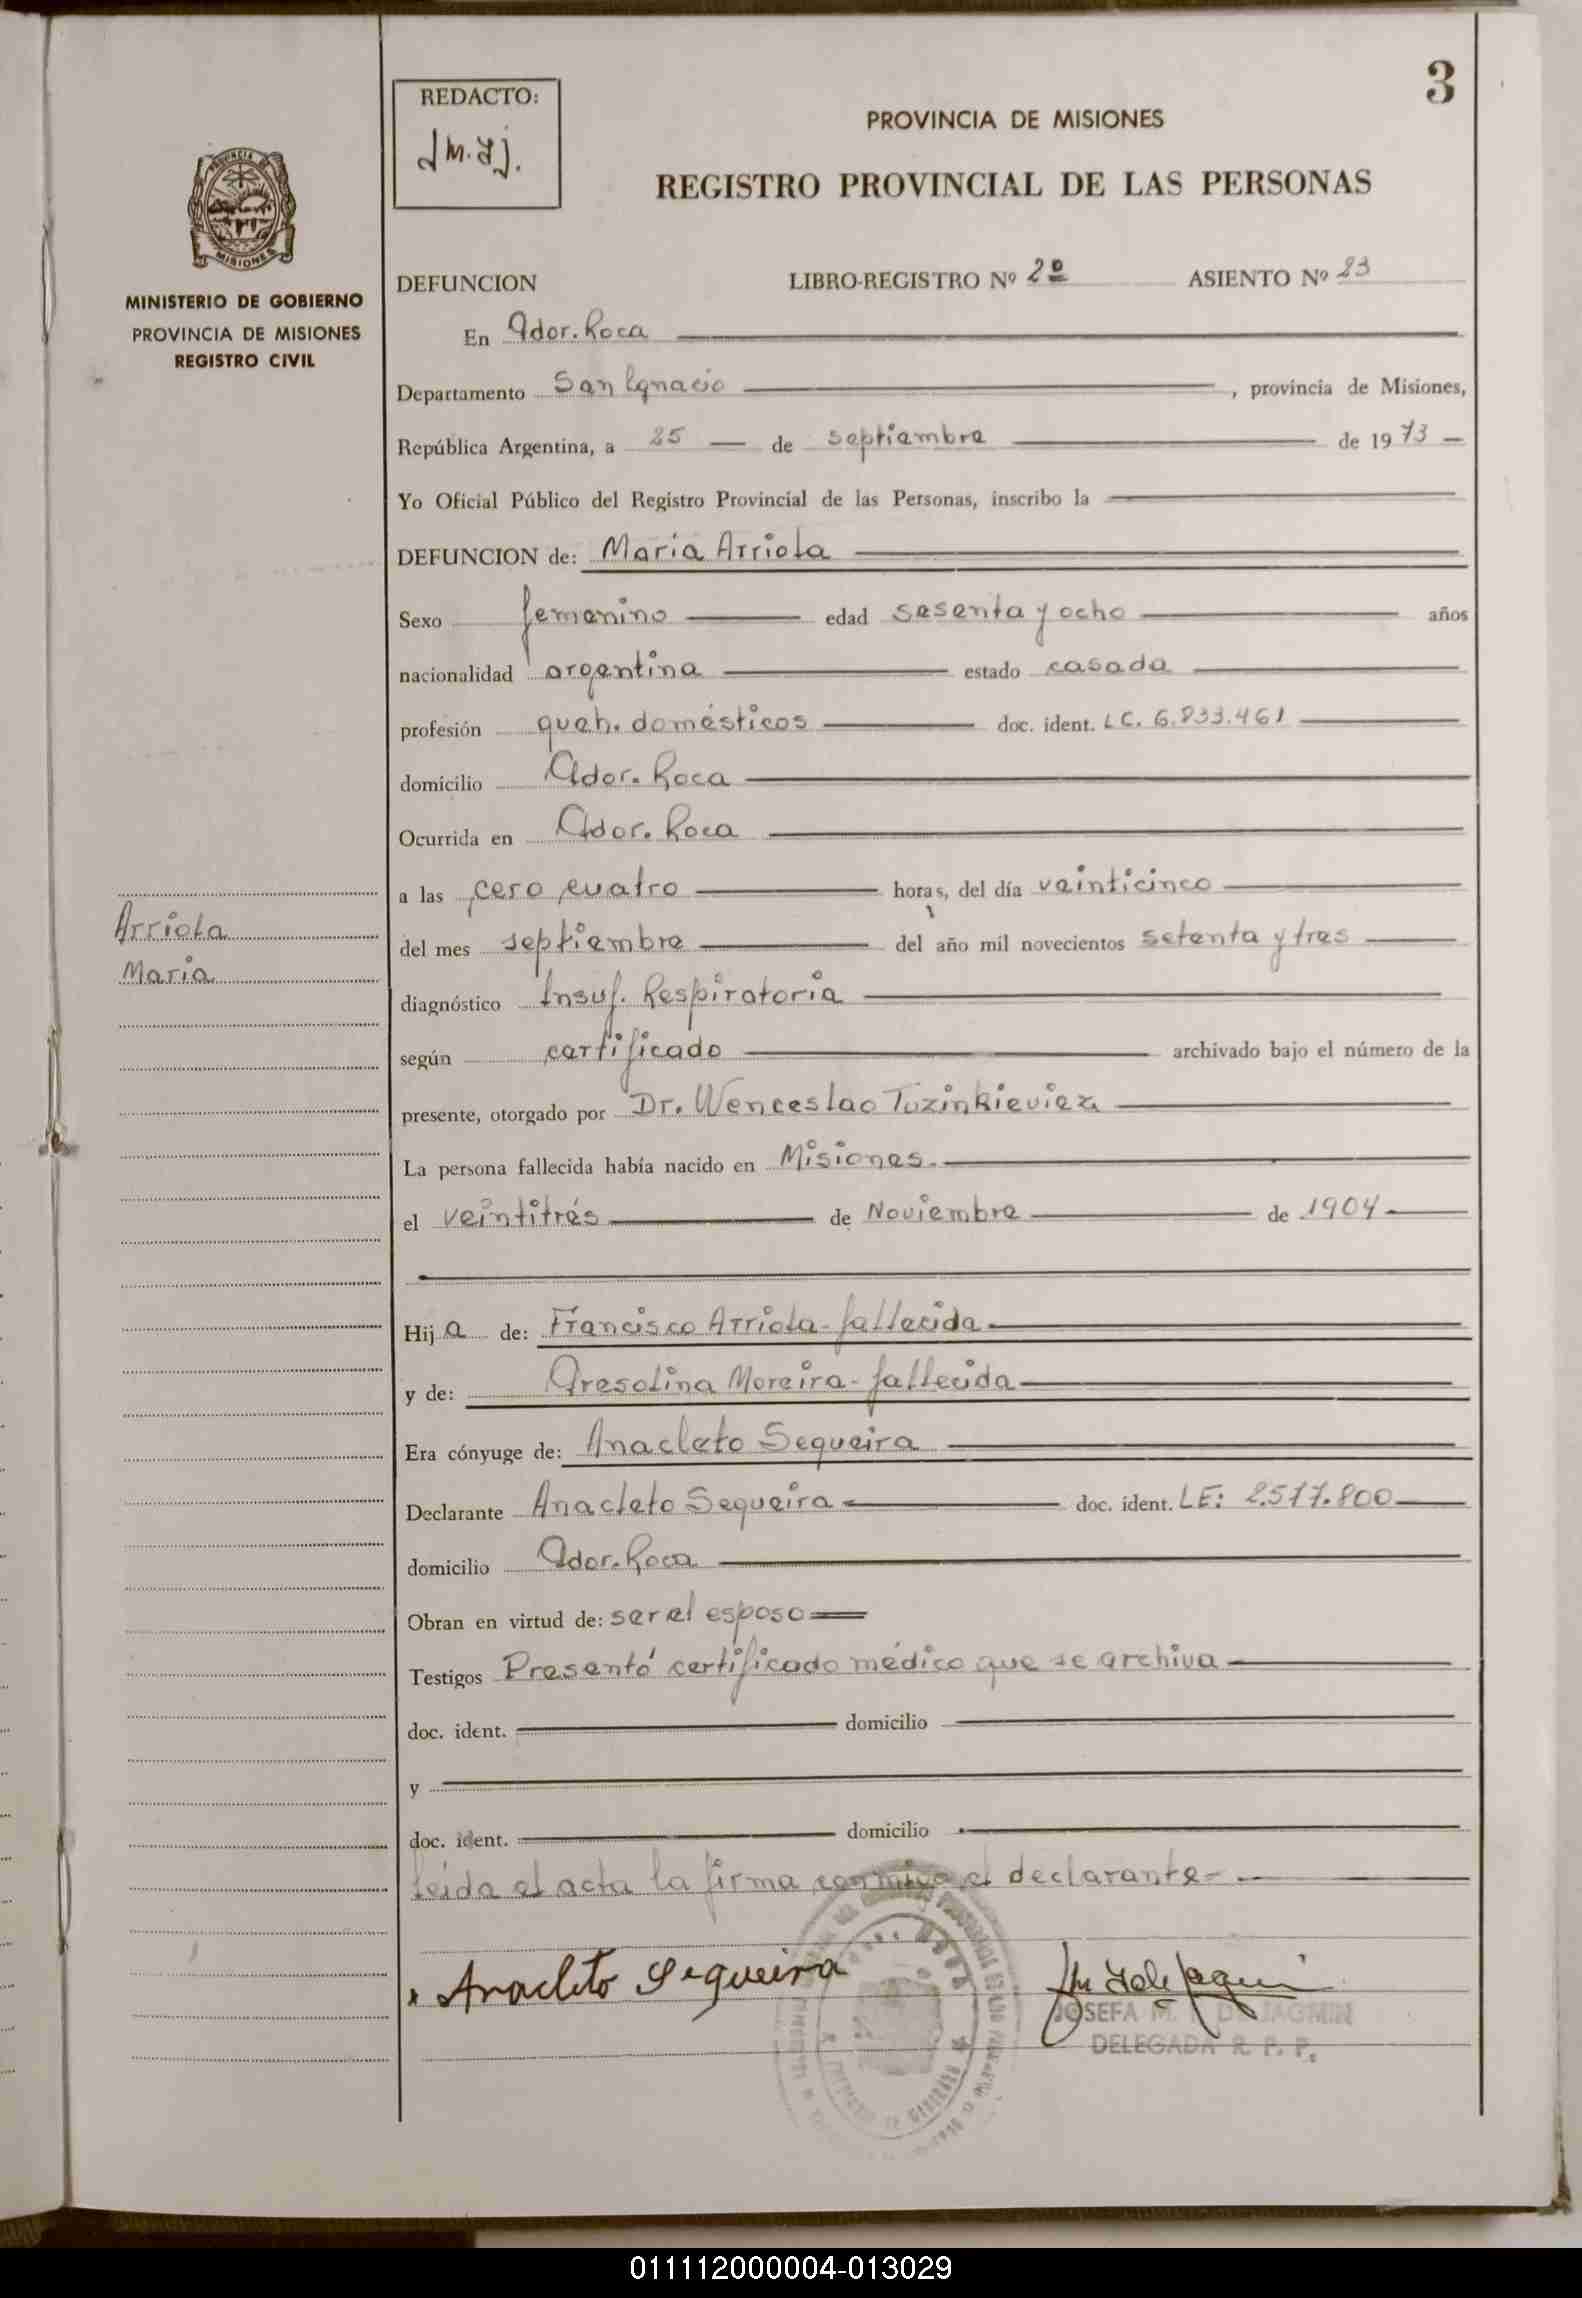 3
REDACTO:
J M. I J.
PROVINCIA DE MISIONES
REGISTRO PROVINCIAL DE LAS PERSONAS
PROVINCIA DE
MISIONES
MINISTERIO DE GOBIERNO
PROVINCIA DE MISIONES
REGISTRO CIVIL
DEFUNCION LIBRO-REGISTRO Nº 2º ASIENTO Nº 23
En Gdor. Roca
Departamento San Ignacio, provincia de Misiones,
República Argentina, a 25 de septiembre de 1973
Yo Oficial Público del Registro Provincial de las Personas, inscribo la
DEFUNCION de: Maria Arriola
Sexo femenino edad sesenta y ocho años
nacionalidad argentina estado casada
profesión queh. domésticos doc. ident. LC. 6.833.461
domicilio Gdor. Roca
Ocurrida en Gdor. Roca
a las cero cuatro horas, del día veinticinco
Arriola
del mes septiembre del año mil novecientos setenta y tres
Maria
diagnóstico Insuf. Respiratoria
según certificado archivado bajo el número de la
presente, otorgado por Dr. Wenceslao Tuzinkieviez
La persona fallecida había nacido en Misiones.
el veintitrés de Noviembre de 1904
Hij a de: Francisco Arriola - fallecida
y de: Gresolina Moreira - fallecida
Era cónyuge de: Anacleto Sequeira
Declarante Anacleto Sequeira doc. ident. LE: 2.577.800
domicilio Gdor. Roca
Obran en virtud de: ser el esposo
Testigos Presentó certificado médico que se archiva
doc. ident. domicilio
y
doc. ident. domicilio
leida el acta la firma conmigo el declarante
Anacleto Sequeira
JOSEFA M. I. DE JAQMIN
DELEGADA R. P. P.
011112000004-013029